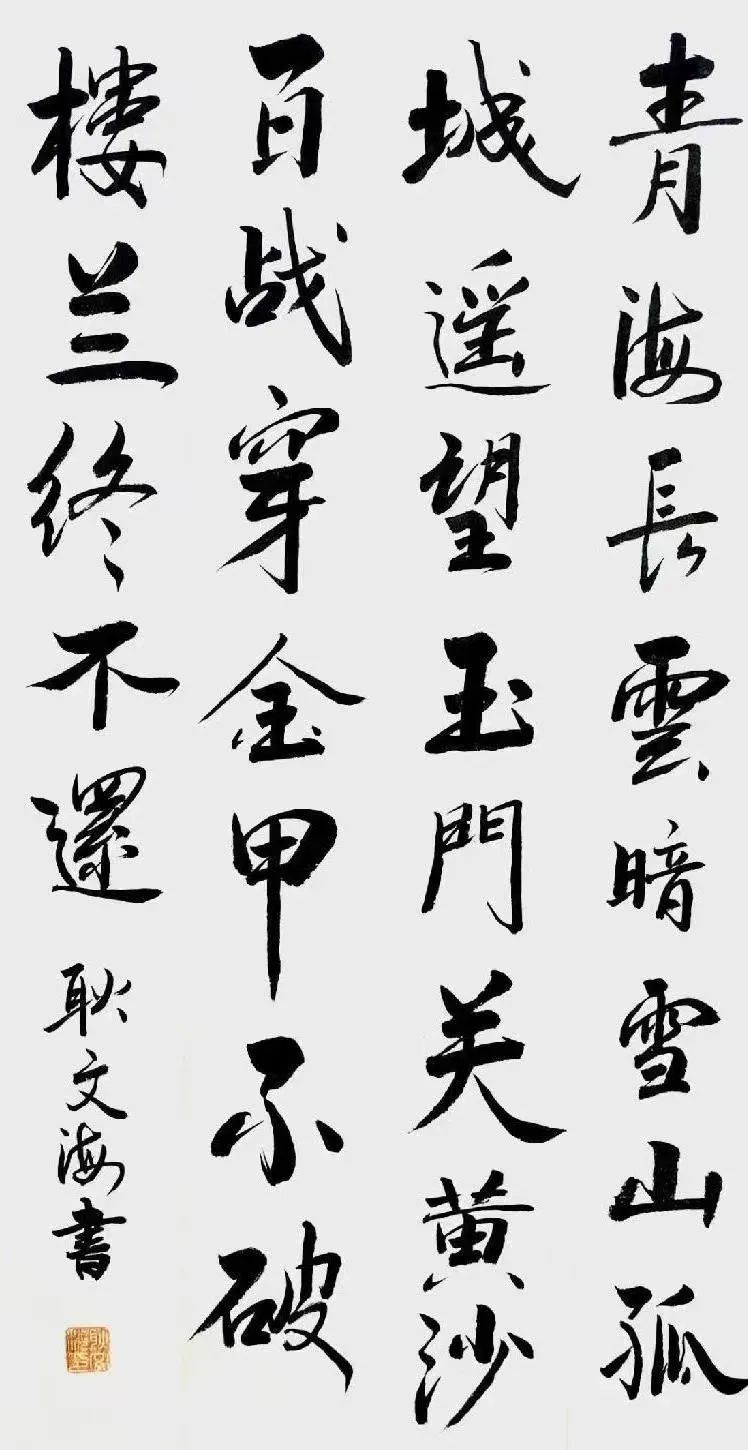 青海長雲暗雪山孤
城遥望玉門关黄沙
百战穿金甲不破
樓兰终不還 耿文海書